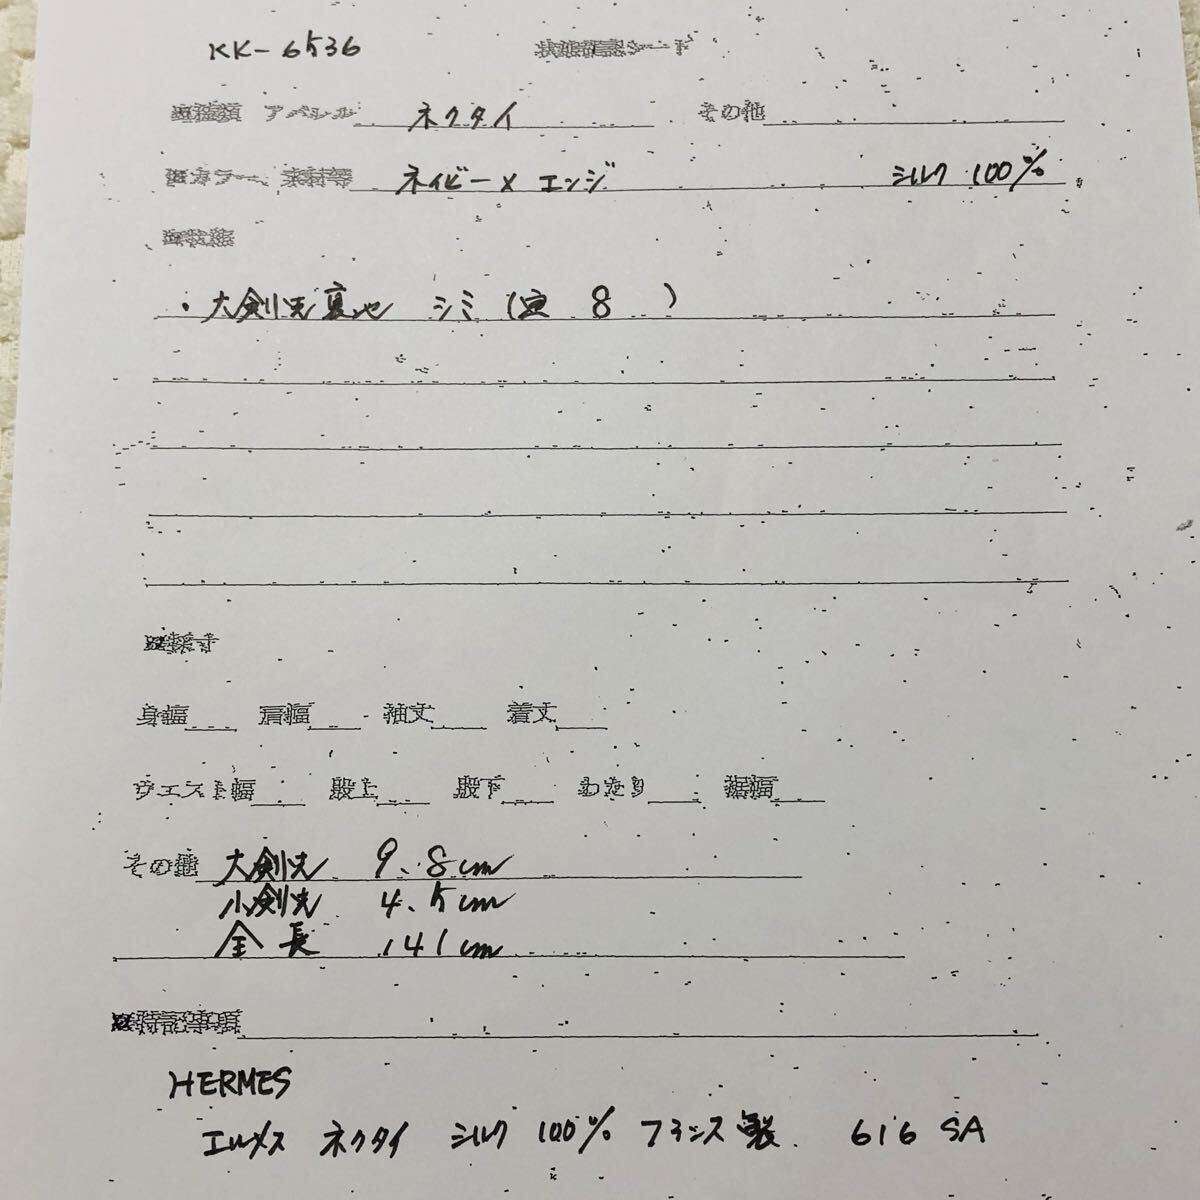 KK-6536 状態確認シート
種類 アパレル ネクタイ その他
カラー、素材等 ネイビー×エンジ シルク 100%
状態
・大剣先裏地 シミ (写 8 )
採寸
身幅 肩幅 袖丈 着丈
ウエスト幅 股上 股下 わたり 裾幅
その他 大剣先 9.8cm
小剣先 4.5cm
全長 141cm
特記事項
HERMES
エルメス ネクタイ シルク 100% フランス製 616 SA